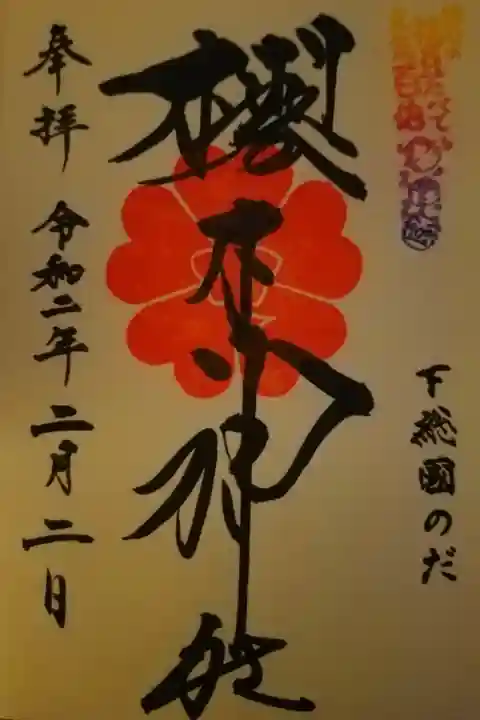 下総國のだ
櫻木神社
奉拝 令和二年二月二日